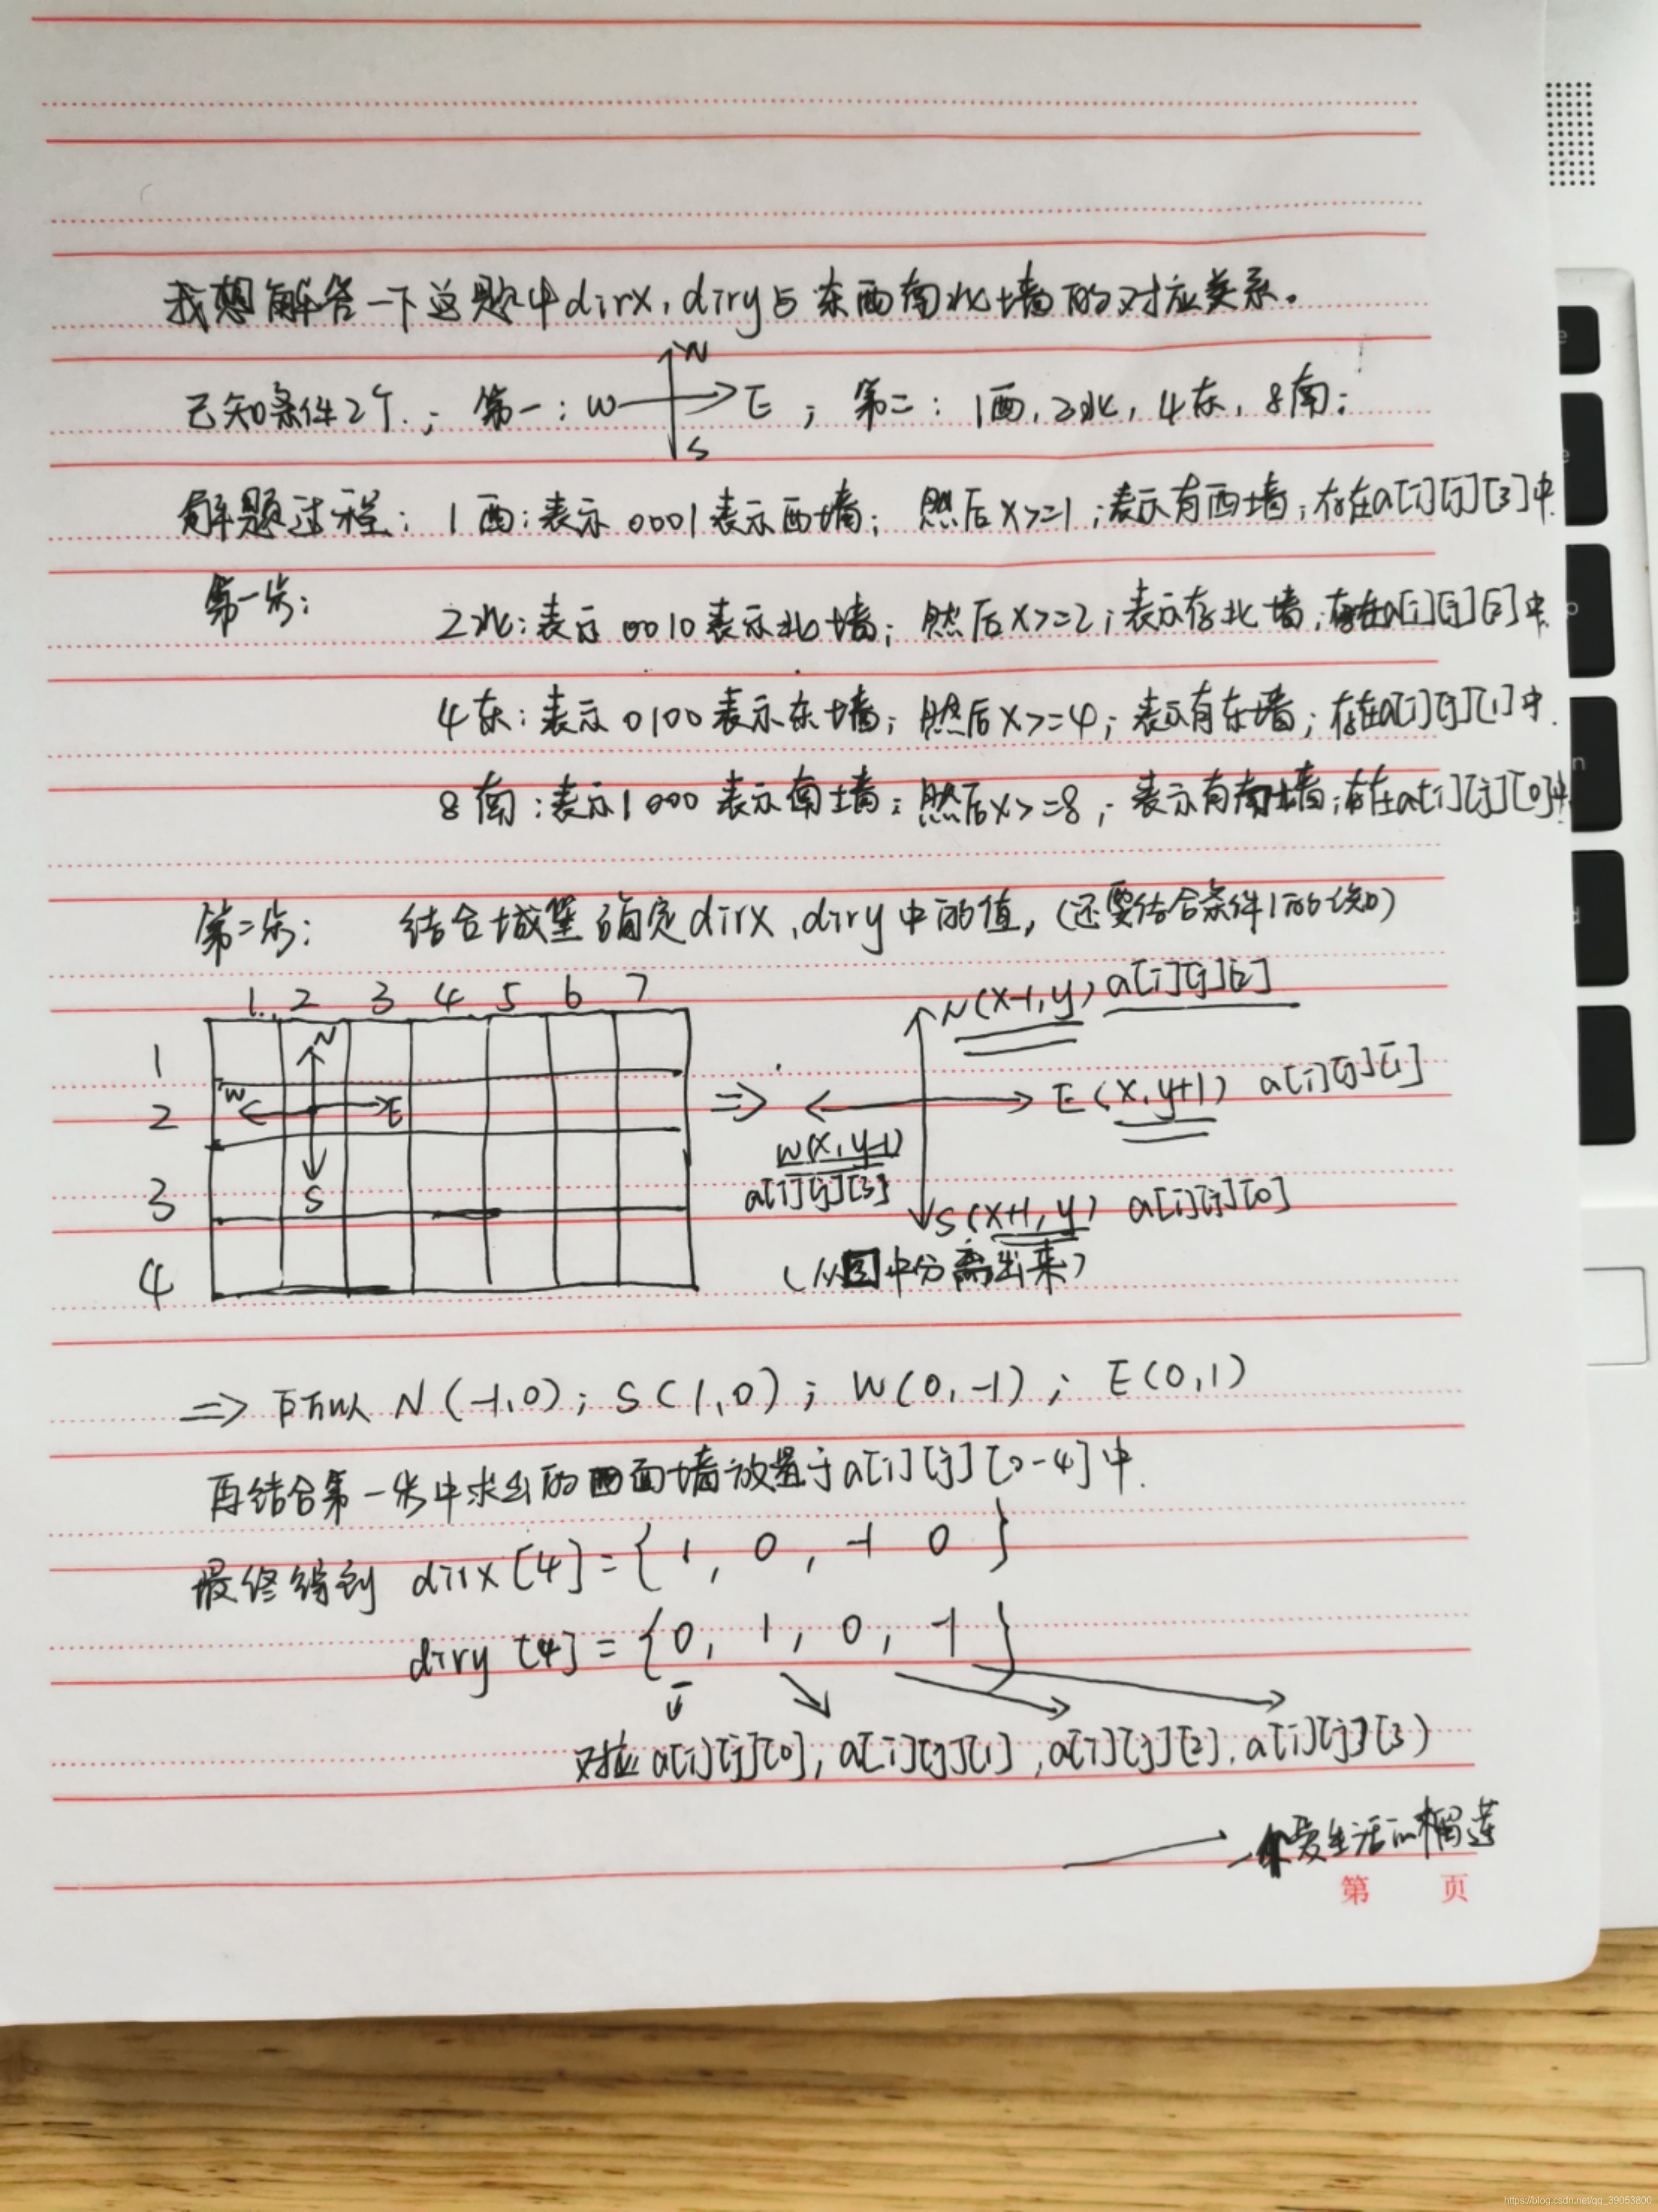 我想解答一下这题中dirx,diry与东西南北墙的对应关系。
N
已知条件2个.; 第一: W E ; 第二: 1西,2北,4东,8南;
S
解题过程: 1西:表示0001表示西墙; 然后x>=1;表示有西墙;存在a[i][j][3]中.
第一步:
2北:表示0010表示北墙; 然后x>=2;表示存北墙;存在a[i][j][2]中.
4东:表示0100表示东墙; 然后x>=4;表示有东墙;存在a[i][j][1]中.
8南:表示1000表示南墙; 然后x>=8;表示有南墙;存在a[i][j][0]中.
第二步: 结合城堡确定dirx,diry中的值,(还要结合条件1的)
1 2 3 4 5 6 7
N(x-1,y) a[i][j][2]
1 N
2 W E => E(x,y+1) a[i][j][1]
W(x,y-1)
3 S a[i][j][3] S(x+1,y) a[i][j][0]
4 (从图中分离出来)
=> 所以 N(-1,0); S(1,0); W(0,-1); E(0,1)
再结合第一步中求出的四面墙放置于a[i][j][0-4]中.
最终得到 dirx[4]={1,0,-1 0}
diry[4]={0,1,0,-1}
对应a[i][j][0],a[i][j][1],a[i][j][2],a[i][j][3]
爱生活的榴莲
第 页
https://blog.csdn.net/qq_39053800